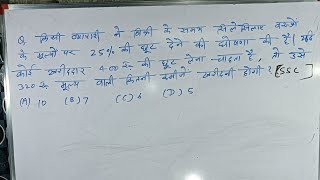 Q. किसी व्यापारी ने बिक्री के समय सिलेसिलाए वस्त्रों
के मूल्यों पर 25% की छूट देने की घोषणा की है। यदि
कोई खरीददार 400 रू. की छूट लेना चाहता है, तो उसे
320 रू. मूल्य वाली कितनी कमीजें खरीदनी होगी? [SSC]
(A) 10 (B) 7 (C) 6 (D) 5